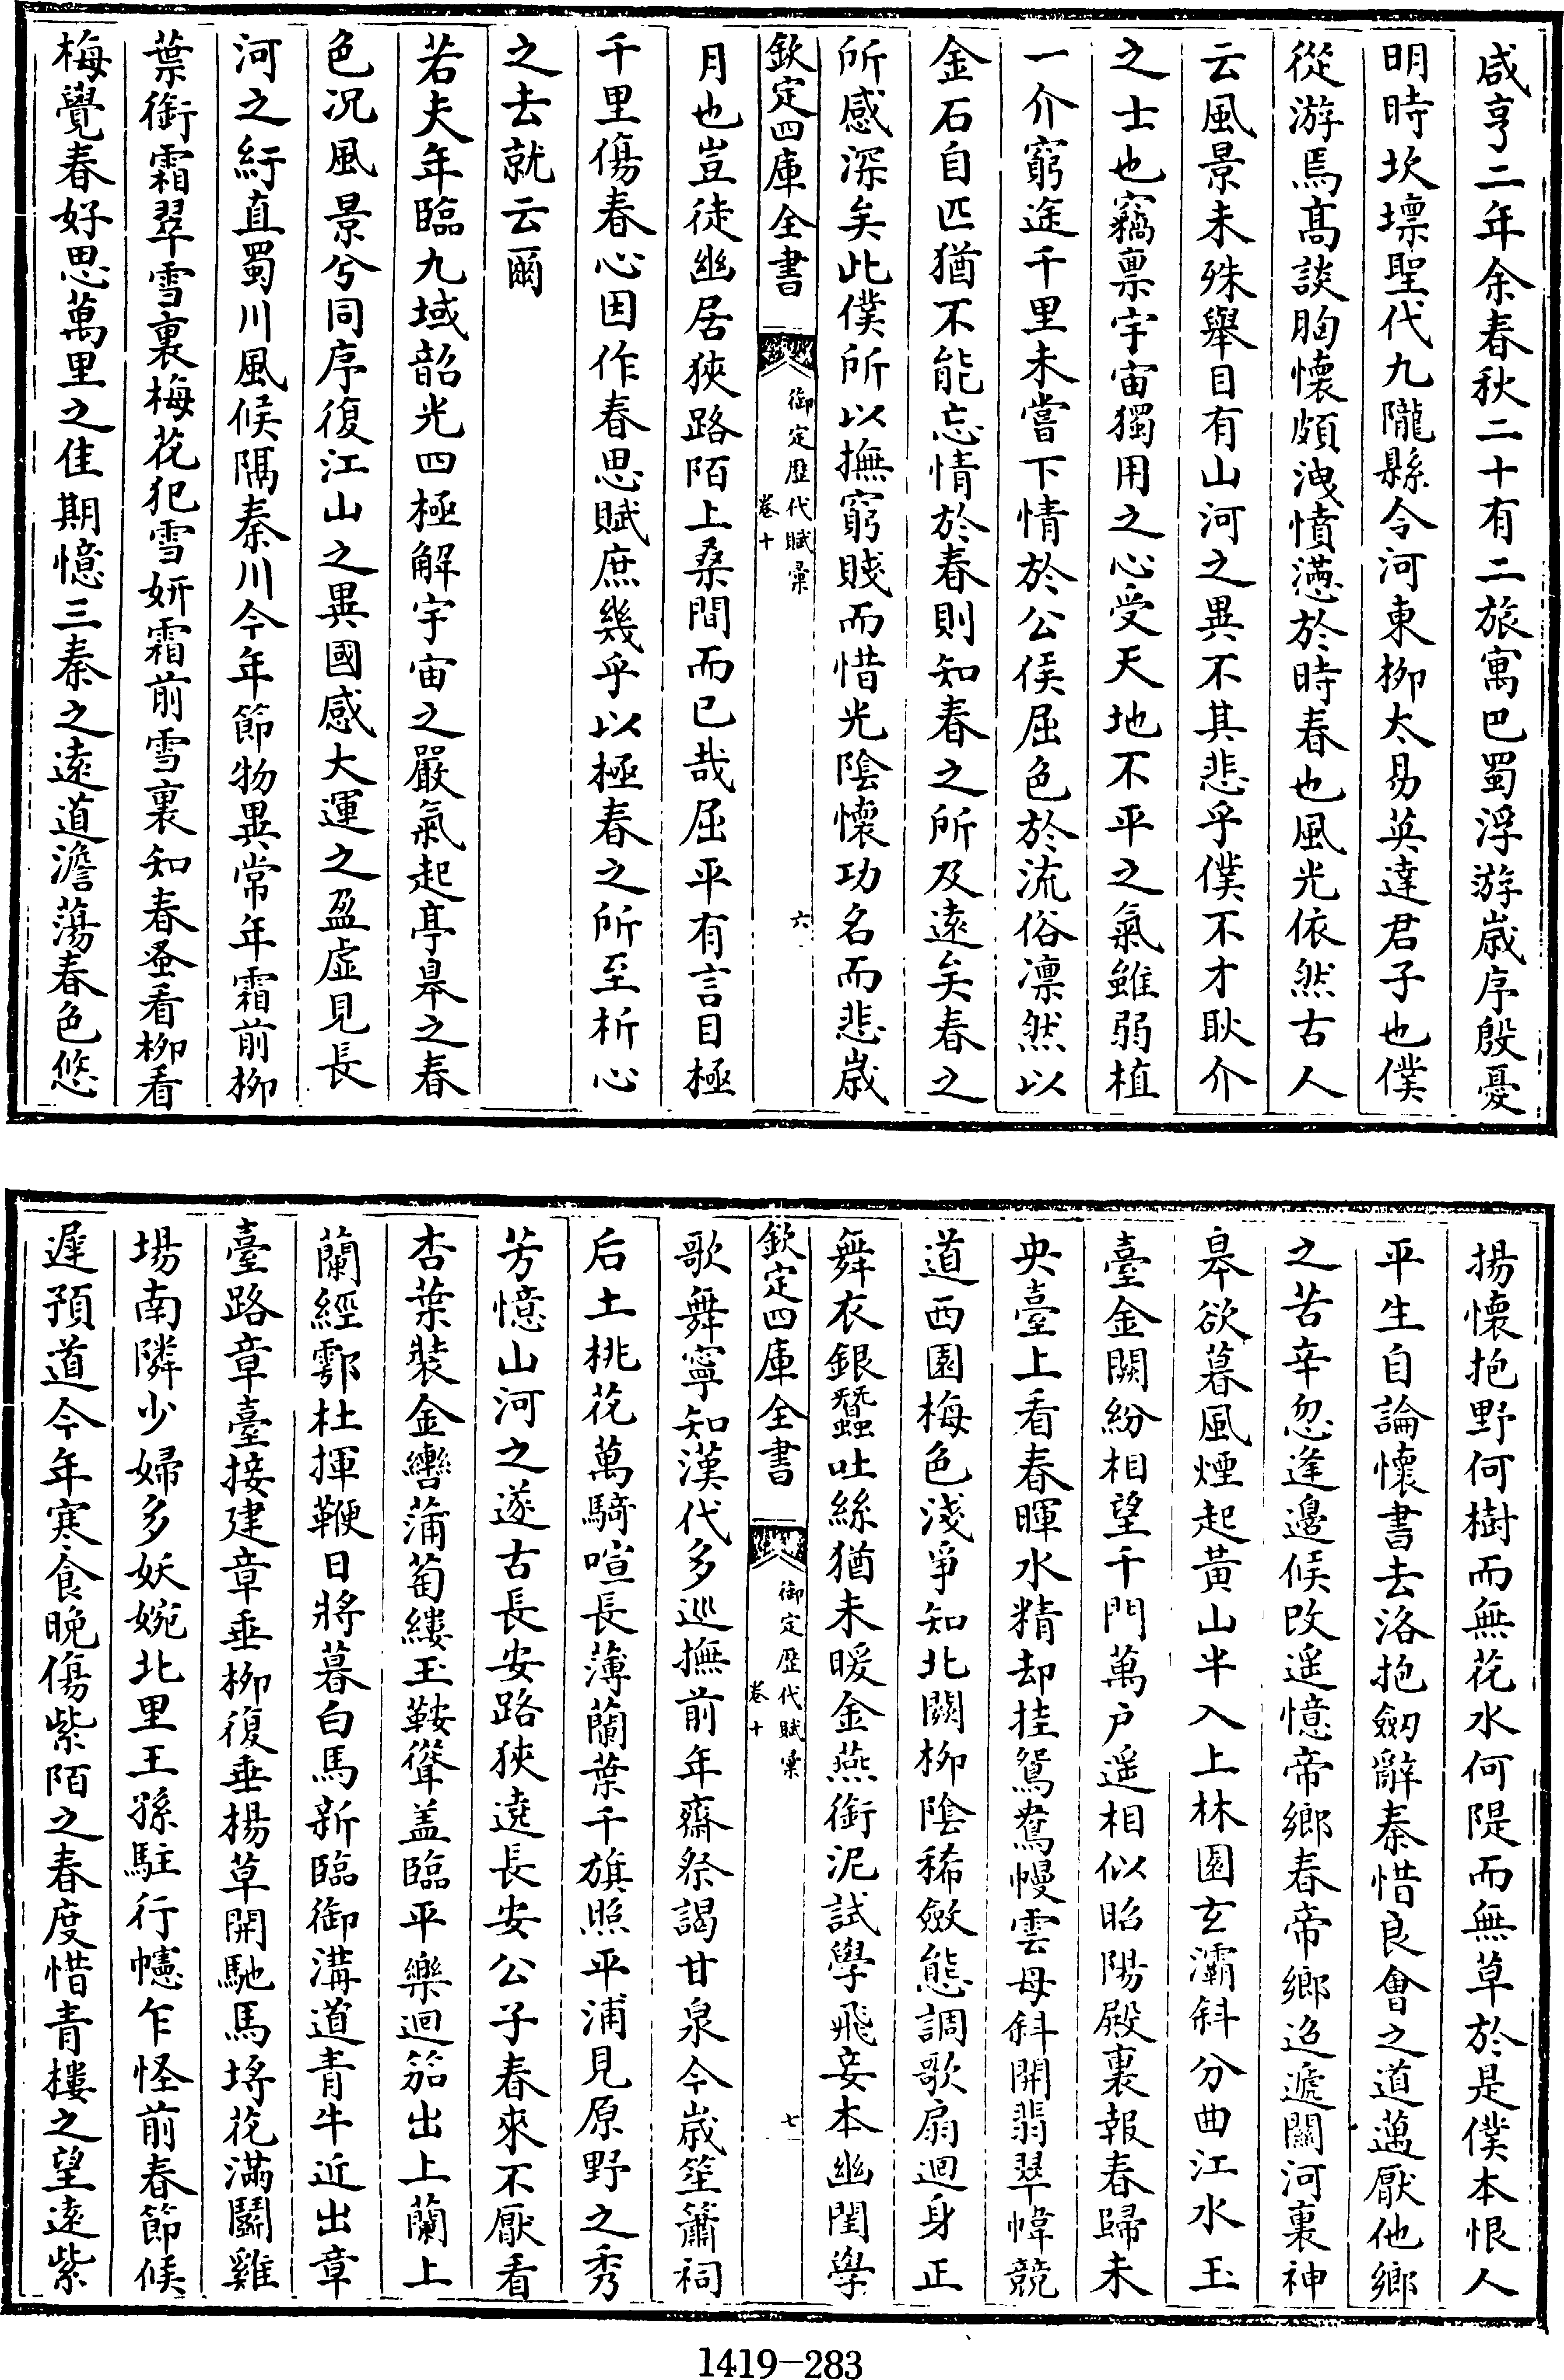 咸亨二年余春秋二十有二旅寓巴蜀浮游歲序殷憂
明時坎壈聖代九隴縣令河東柳太易英達君子也僕
從游焉髙談胸懷頗洩憤懣於時春也風光依然古人
云風景未殊舉目有山河之異不其悲乎僕不才耿介
之士也竊禀宇宙獨用之心受天地不平之氣雖弱植
一介窮途千里未嘗下情於公侯屈色於流俗凛然以
金石自匹猶不能忘情於春則知春之所及逺矣春之
所感深矣此僕所以撫窮賤而惜光隂懷功名而悲歲
欽定四庫全書
御定歴代賦彙
卷十
六
月也豈徒幽居狹路陌上桑間而已哉屈平有言目極
千里傷春心因作春思賦庶幾乎以極春之所至析心
之去就云爾
若夫年臨九域韶光四極解宇宙之嚴氣起亭臯之春
色况風景兮同序復江山之異國感大運之盈虚見長
河之紆直蜀川風候隔秦川今年節物異常年霜前柳
葉銜霜翠雪裏梅花犯雪妍霜前雪裏知春蚤看柳看
梅覺春好思萬里之佳期憶三秦之逺道澹蕩春色悠
揚懷抱野何樹而無花水何隄而無草於是僕本恨人
平生自論懷書去洛抱劒辭秦惜良會之道邁厭他鄉
之苦辛忽逢邊候改遥憶帝鄉春帝鄉迢遞關河裏神
臯欲暮風煙起黃山半入上林園玄灞斜分曲江水玉
臺金闕紛相望千門萬户遥相似昭陽殿裏報春歸未
央臺上看春暉水精却挂鴛鴦幔雲母斜開翡翠幃競
道西園梅色淺爭知北闕柳隂稀斂態調歌扇迴身正
舞衣銀蠶吐絲猶未暖金燕銜泥試學飛妾本幽閨學
欽定四庫全書
御定歴代賦彙
卷十
七
歌舞寧知漢代多巡撫前年齋祭謁甘泉今歲笙簫祠
后土桃花萬騎喧長薄蘭葉千旗照平浦見原野之秀
芳憶山河之遂古長安路狹遶長安公子春來不厭看
杏葉裝金轡蒲萄縷玉鞍聳盖臨平樂迴笳出上蘭上
蘭經鄠杜揮鞭日將暮白馬新臨御溝道青牛近出章
臺路章臺接建章垂柳復垂楊草開馳馬埓花滿鬬雞
場南隣少婦多妖婉北里王孫駐行幰乍怪前春節候
遲預道今年寒食晚傷紫陌之春度惜青樓之望逺紫
1419—283